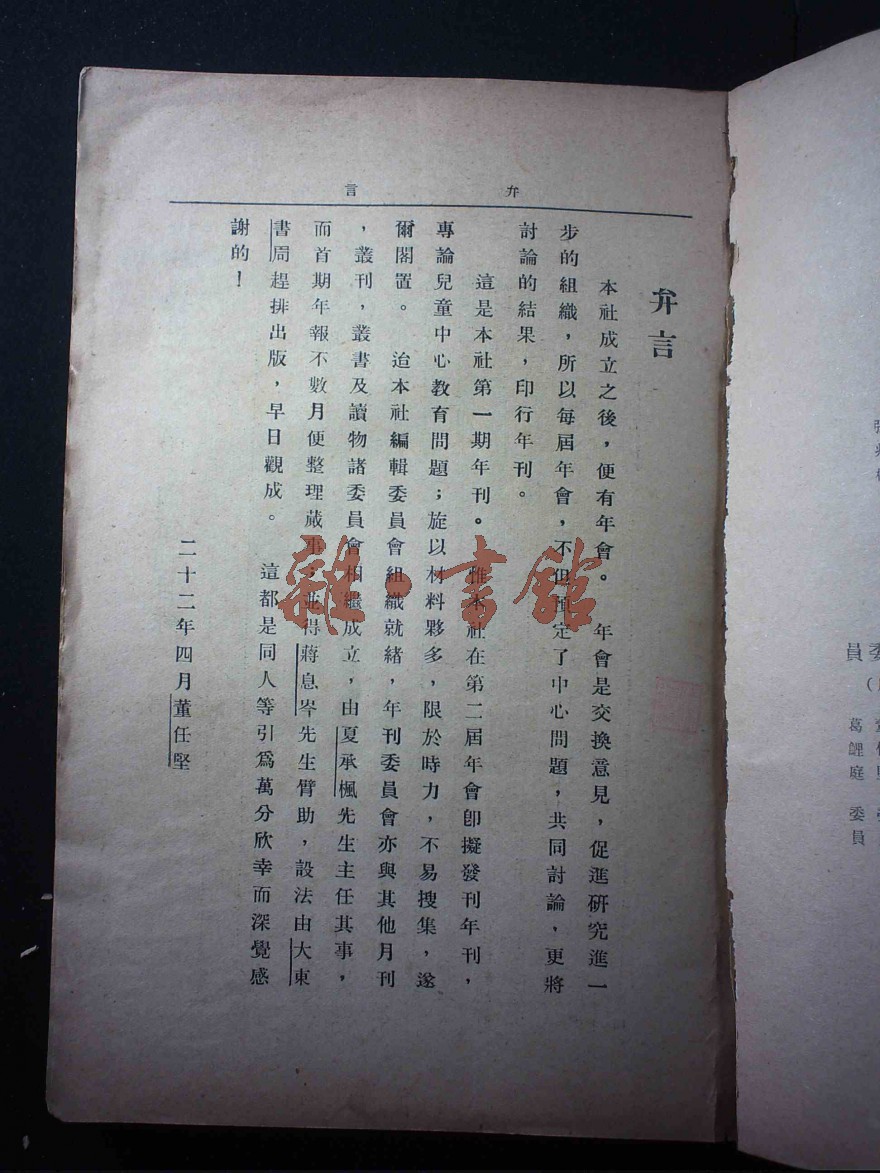 弁言
弁言
本社成立之後，便有年會。 年會是交換意見，促進研究進一
步的組織，所以每屆年會，不但預定了中心問題，共同討論，更將
討論的結果，印行年刊。
這是本社第一期年刊。惟本社在第二屆年會卽擬發刊年刊，
專論兒童中心教育問題；旋以材料夥多，限於時力，不易搜集，遂
爾閣置。 迨本社編輯委員會組織就緒，年刊委員會亦與其他月刊
，叢刊，叢書及讀物諸委員會相繼成立，由夏承楓先生主任其事，
而首期年報不數月便整理蕆事；並得蔣息岑先生臂助，設法由大東
書局趕排出版，早日觀成。 這都是同人等引爲萬分欣幸而深覺感
謝的！
二十二年四月董任堅
雜·書館
員委
葛鯉庭 委員